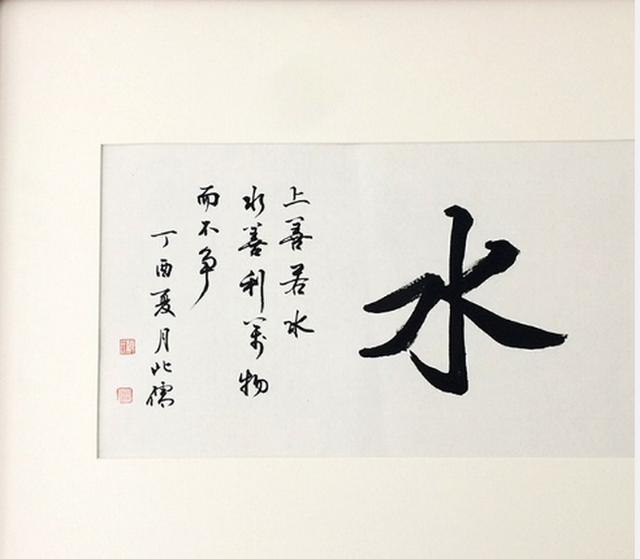 水
上善若水
水善利萬物
而不争
丁酉夏月此儒